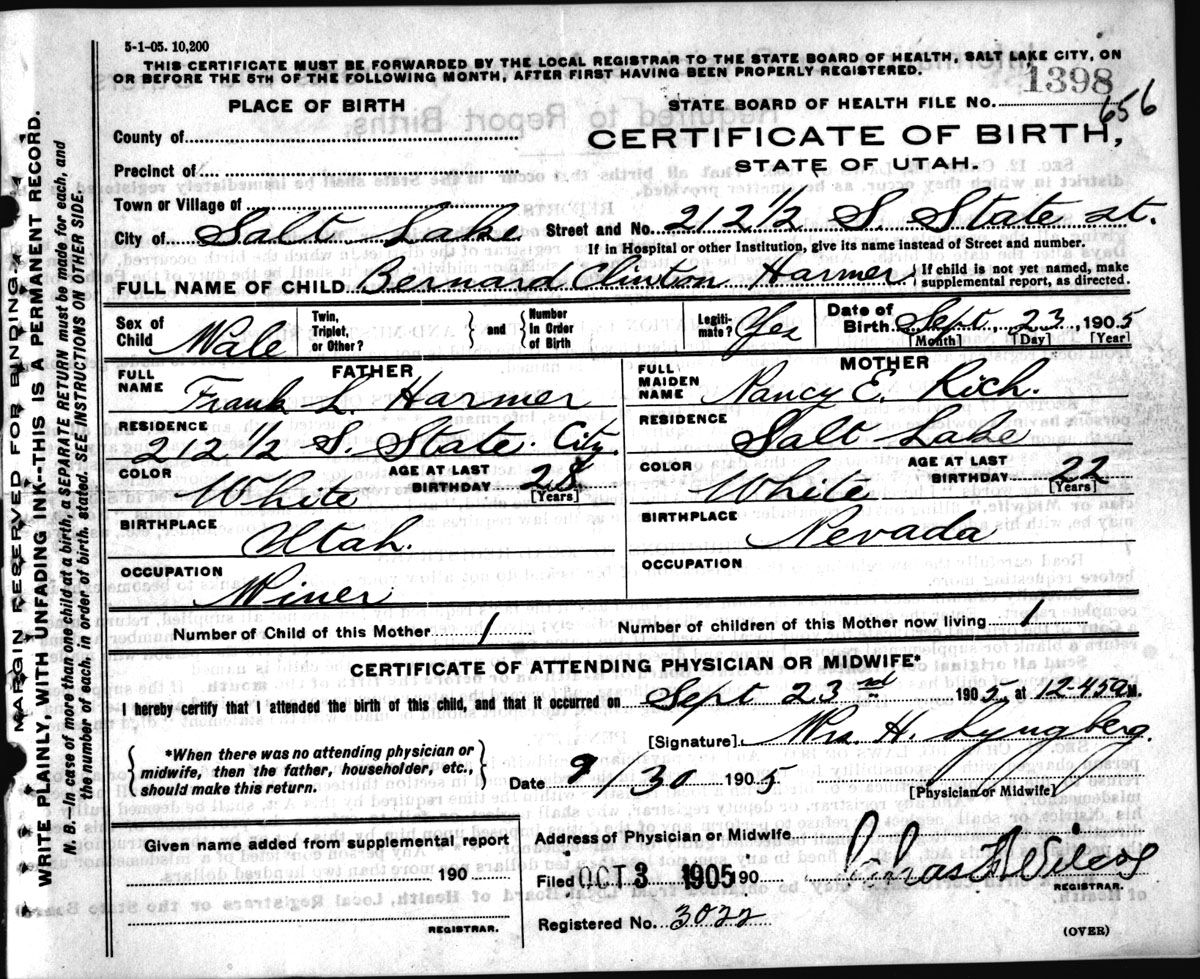 5-1-05. 10,200
THIS CERTIFICATE MUST BE FORWARDED BY THE LOCAL REGISTRAR TO THE STATE BOARD OF HEALTH, SALT LAKE CITY, ON
OR BEFORE THE 5TH OF THE FOLLOWING MONTH, AFTER FIRST HAVING BEEN PROPERLY REGISTERED.
MARGIN RESERVED FOR BINDING
WRITE PLAINLY, WITH UNFADING INK--THIS IS A PERMANENT RECORD.
N. B.--In case of more than one child at a birth, a SEPARATE RETURN must be made for each, and
the number of each, in order of birth, stated. SEE INSTRUCTIONS ON OTHER SIDE.
1398
656
STATE BOARD OF HEALTH FILE NO.
CERTIFICATE OF BIRTH,
STATE OF UTAH.
PLACE OF BIRTH
County of
Precinct of
Town or Village of
City of Salt Lake Street and No. 212 1/2 S. State st.
If in Hospital or other Institution, give its name instead of Street and number.
FULL NAME OF CHILD Bernard Clinton Harmer { If child is not yet named, make
supplemental report, as directed.
Sex of Child Male Twin, Triplet, or Other? } and { Number In Order of Birth Legiti-mate? Yes Date of Birth Sept 23, 1905
[Month] [Day] [Year]
FATHER
FULL NAME Frank L. Harmer
RESIDENCE 212 1/2 S. State. City.
COLOR White AGE AT LAST BIRTHDAY 28 [Years]
BIRTHPLACE Utah.
OCCUPATION Miner
MOTHER
FULL MAIDEN NAME Nancy E. Rich.
RESIDENCE Salt Lake
COLOR White AGE AT LAST BIRTHDAY 22 [Years]
BIRTHPLACE Nevada
OCCUPATION
Number of Child of this Mother 1 Number of children of this Mother now living 1
CERTIFICATE OF ATTENDING PHYSICIAN OR MIDWIFE*
I hereby certify that I attended the birth of this child, and that it occurred on Sept 23rd 1905 at 12-45 a M.
[Signature] Mrs H. Lyngberg.
{ *When there was no attending physician or
midwife, then the father, householder, etc.,
should make this return. }
Date 9/30 1905.
[Physician or Midwife]
Given name added from supplemental report
190
REGISTRAR.
Address of Physician or Midwife
Filed OCT 3 1905 190
REGISTRAR.
Registered No. 3022
(OVER)